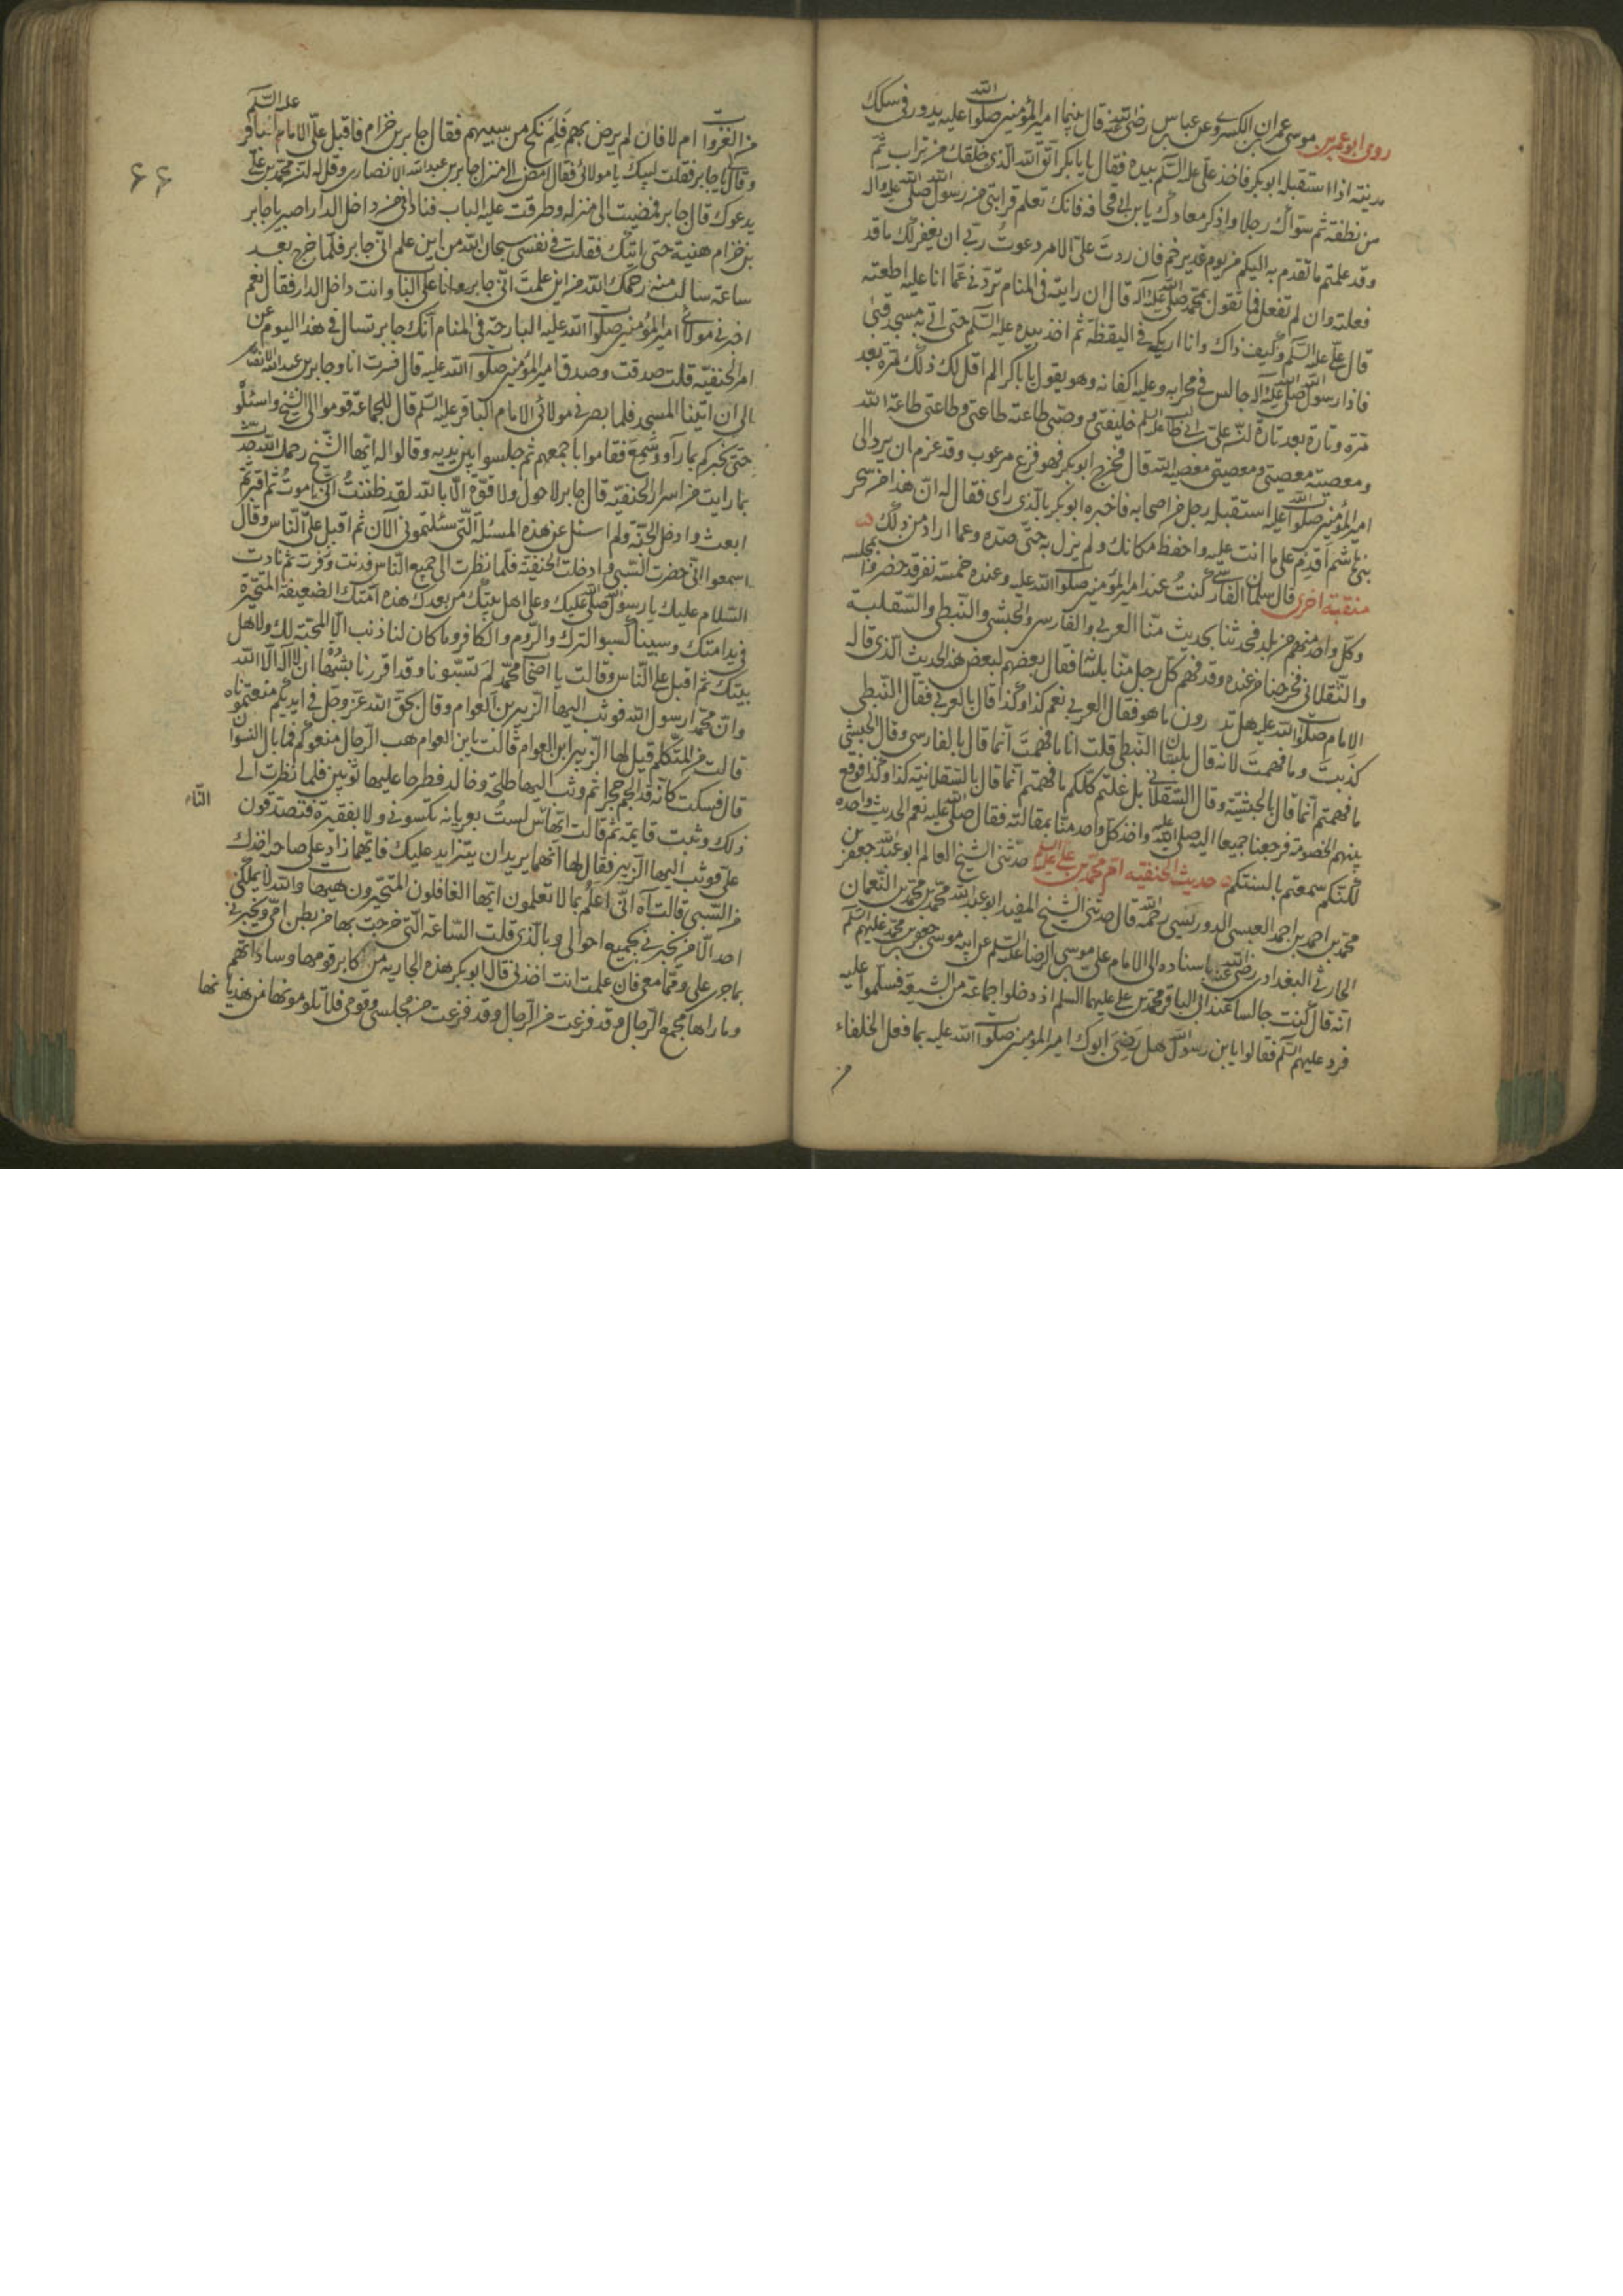 روى ابو عمر بن موسى عمران الكسروى عن عباس رضى الله عنه قال بينما امير المؤمنين صلوات الله عليه يدور فى سكك
مدينته اذا استقبله ابو بكر فاخذ على عليه السلم بيده فقال يابا بكر اتق الله الذى خلقك من تراب ثم
من نطفة ثم سواك رجلا واذكر معادك يابن ابى قحافه فانك تعلم قرابتى من رسول الله صلى الله عليه وآله
وقد علمتم ما تقدم به اليكم من يوم غدير خم فان رددت على الامر دعوت ربى ان يغفر لك ما قد
فعلته وان لم تفعل فما تقول بمحمد صلى الله عليه وآله قال ان رايته فى المنام تردنى عما انا عليه اطعته
قال على عليه السلم وكيف ذاك وانا اريكه فى اليقظة ثم اخذ بيده عليه السلم حتى اتى به مسجد قبا
فاذا رسول الله صلى الله عليه وآله جالس فى محرابه وعليه اكفانه وهو يقول يابا بكر الم اقل لك ذلك مرة بعد
مرة وتارة بعد تارة ان على بن ابى طالب عليه السلم خليفتى ووصيى طاعته طاعتى وطاعتى طاعة الله
ومعصيته معصيتى ومعصيتى معصية الله قال فخرج ابو بكر فهو فزع مرعوب وقد عزم ان يرد الى
امير المؤمنين صلوات الله عليه استقبله رجل من اصحابه فاخبره ابو بكر بالذى راى فقال له ان هذا من سحر
بنى هاشم اقدم على ما انت عليه واحفظ مكانك ولم يزل به حتى صده وعما اراد من ذلك
منقبة اخرى قال سلمان الفارسى كنت عند امير المؤمنين صلوات الله عليه وعنده خمسة نفر قد حضروا بمجلسه
وكل واحد منهم من بلد فحدثنا بحديث منا العربى والفارسى والحبشى والنبطى والسقلبية
والنقلانى فخرجنا من عنده وقد فهم كل رجل منا بلسانه فقال بعضهم لبعض هذا الحديث الذى قاله
الامام صلوات الله عليه هل تدرون ما هو فقال العربى نعم كذا وكذا قال بالعربى فقال النبطى
كذبت وما فهمت لانه قال بلسان النبطى قلت انا ما فهمت انما قال بالفارسى وقال الحبشى
ما فهمتم انما قال بالحبشية وقال السقلابى بل غلتم كلكم ما فهمتم انما قال بالسقلانية كذا وكذا فوقع
بينهم الخصومة فرجعنا جميعا اليه صلى الله عليه واخذ كل واحد منا بمقالته فقال صلى الله عليه نعم الحديث واحده
لكنكم سمعتم بالسنتكم حديث الحنفيه ام محمد بن على عليه السلم حدثنى الشيخ العالم ابو عبد الله جعفر بن
محمد بن احمد بن احمد العبسى الدوريسى رحمه الله قال حدثنى الشيخ المفيد ابو عبد الله محمد بن محمد بن النعمان
الحارثى البغدادى رضى الله عنه باسناده الى الامام على بن موسى الرضا عليه السلم عن ابيه موسى بن جعفر بن محمد عليهم السلم
انه قال كنت جالسا عند ابى الباقر محمد بن على عليهما السلم اذ دخلوا جماعة من الشيعة فسلموا عليه
فرد عليهم السلم فقالوا يابن رسول الله هل رضى ابوك امير المؤمنين صلوات الله عليه بما فعل الخلفاء
من
عليه السلم
من الغزوات ام لا فان لم يرض بهم فلم نكح من سبيهم فقال جابر بن حزام فاقبل على الامام الباقر
وقال لى يا جابر فقلت لبيك يا مولائى فقال امض الى منزل جابر بن عبد الله الانصارى وقل له ان محمد بن على
يدعوك قال جابر فمضيت الى منزله وطرقت عليه الباب فنادانى من داخل الدار اصبر يا جابر
بن حزام هنية حتى اتيك فقلت فى نفسى سبحان الله من اين علم انى جابر فلما خرج بعد
ساعة سالت منه رحمك الله من اين علمت انى جابر وانا على الباب وانت داخل الدار فقال نعم
اخبرنى مولائى امير المؤمنين صلوات الله عليه البارحة فى المنام انك جابر تسال فى هذا اليوم عن
امر الحنفيه قلت صدقت وصدق امير المؤمنين صلوات الله عليه قال فسرت انا وجابر بن عبد الله الانصارى
الى ان اتينا المسجد فلما بصر فى مولائى الامام الباقر عليه السلم قال للجماعة قوموا الى الشيخ واسئلوا
حتى يخبركم بما رآه وسمع فقاموا باجمعهم ثم جلسوا بين يديه وقالوا له ايها الشيخ رحمك الله حدث
بما رايت من اسرار الحنفيه قال جابر لا حول ولا قوة الا بالله لقد ظننت انى اموت ثم اقبر ثم
ابعث وادخل الجنة ولم اسئل عن هذه المسئلة التى سئلتمونى الآن ثم اقبل على الناس وقال
اسمعوا انى حضرت السبى وادخلت الحنفية فلما نظرت الى جميع الناس فدنت وزفرت ثم نادت
السلام عليك يا رسول الله صلى الله عليك وعلى اهل بيتك من بعدك هذه امتك الضعيفة المتحيرة
فى يد امتك وسبينا كسبوا الترك والروم والكافر وما كان لنا ذنب الا المحبة لك ولاهل
بيتك ثم اقبل على الناس وقالت يا اصحاب محمد لم تسبونا وقد اقررنا بشهادة ان لا اله الا الله
وان محمدا رسول الله فوثب اليها الزبير بن العوام وقال بحق الله عز وجل فى ايديكم منعتموناه
قالت من المتكلم قيل لها الزبير ابن العوام قالت يابن العوام هب الرجال منعوكم فما بال النسوان
قال فسكت كانه قد الجم حجرا ثم وثب اليها طلحة وخالد فطرحا عليها ثوبين فلما نظرت الى
ذلك وثبت قايمة ثم قالت ايها الناس لست بعريانة تكسونى ولا بفقيرة فتصدقون
على فوثب اليها الزبير فقال لها انهما يريدان يتزايد عليك فايهما زاد على صاحبه اخذك
من السبى قالت آه انى اعلم بما لا تعلمون ايها الغافلون المتحيرون هيهات والله لا يملكنى
احد الا من يخبرنى بجميع احوالى وبالذى قلت الساعة التى خرجت بها من بطن امى ويخبرنى
بما جرى على وقما معى فان علمت انت اخذنى قال ابو بكر هذه الجاريه من اكابر قومها وساداتهم
وما راها مجمع الرجال وقد فزعت من الرجال وقد فزعت من مجلسى وقومى فلا تلومونها من هذيانها